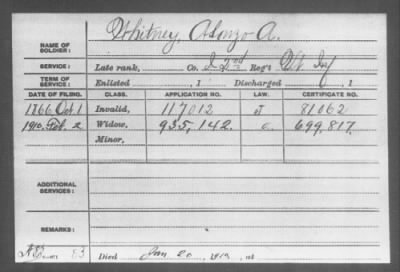 NAME OF SOLDIER: Whitney, Alonzo A.
SERVICE: Late rank, Co. I 22nd Reg't Inf
TERM OF SERVICE: Enlisted , 1 Discharged , 1
DATE OF FILING. CLASS. APPLICATION NO. LAW. CERTIFICATE NO.
1866 Oct 1 Invalid, 117012 81062
1910, Feb. 2 Widow, 935,142. 699,817.
Minor,
ADDITIONAL SERVICES:
REMARKS:
83 Died Jan 20, at